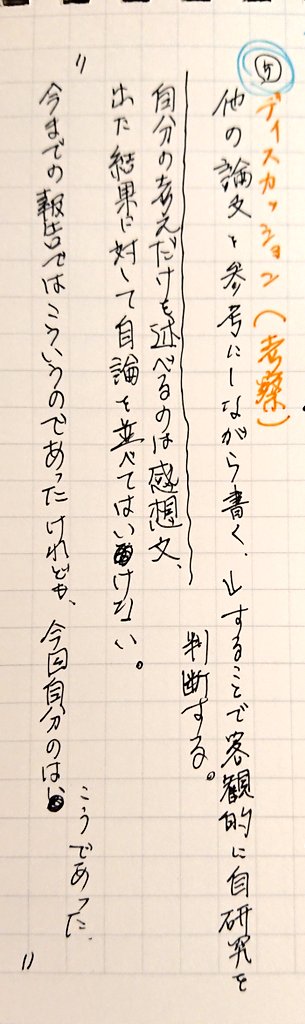 ⑤ ディスカッション(考察)
他の論文を参考にしながら書く、↓することで客観的に自研究を
判断する。
自分の考えだけを述べるのは感想文、
出た結果に対して自論を並べてはいけない。
〃今までの報告ではこういうのであったけれども、今回自分のは、
こうであった。〃